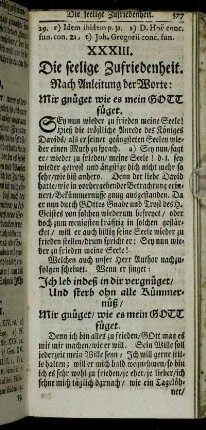 Die seelige Zufriedenheit. 377
29. r) Idem ibidem p. 31. s) D. Hoë conc.
fun. con. 21. t) Joh. Gregorii conc. fun.
XXXIII.
Die seelige Zufriedenheit.
Nach Anleitung der Worte:
Mir gnüget wie es mein GOTT
füget.
Sey nun wieder zu frieden meine Seele!
Hieß die tröstliche Anrede des Königes
Davids/ als er seiner geängsteten Seelen wie-
der einen Muth zusprach. a) Sey nun/sagt
er/ wieder zu frieden/ meine Seele! d. i. sey
wieder getrost und ängstige dich nicht mehr so
sehr/ wie biß anhero. Denn der liebe David
hatte/ wie in vorhergehender Betrachtung erin-
nert/ Bekümmernüsse gnug ausgestanden. Da
er nun durch GOttes Gnade und Trost des H.
Geistes von solchen wiederum befreyet / oder
doch zum wenigsten kräfftig in solchen gestär-
cket / will er auch billig seine Seele wieder zu
frieden stellen/ drum spricht er: Sey nun wie-
der zu frieden meine Seele!
Welchen auch unser Herr Author nachzu-
folgen scheinet. Wenn er singet:
Ich leb indeß in dir vergnüget/
Und sterb ohn alle Kümmer-
nüß/
Mir gnüget/ wie es mein GOTT
füget.
Denn ich bin alles zu frieden/ GOtt mag es
mit mir machen/ wie er will. Sein Wille soll
jederzeit mein Wille seyn: Ich will gerne stil-
le halten; will er mich bald wegnehmen/ so bin
ich es sehr wohl zu frieden/ je eher je lieber/ ich
sehne mich täglich darnach / wie ein Taglöh-
ner/